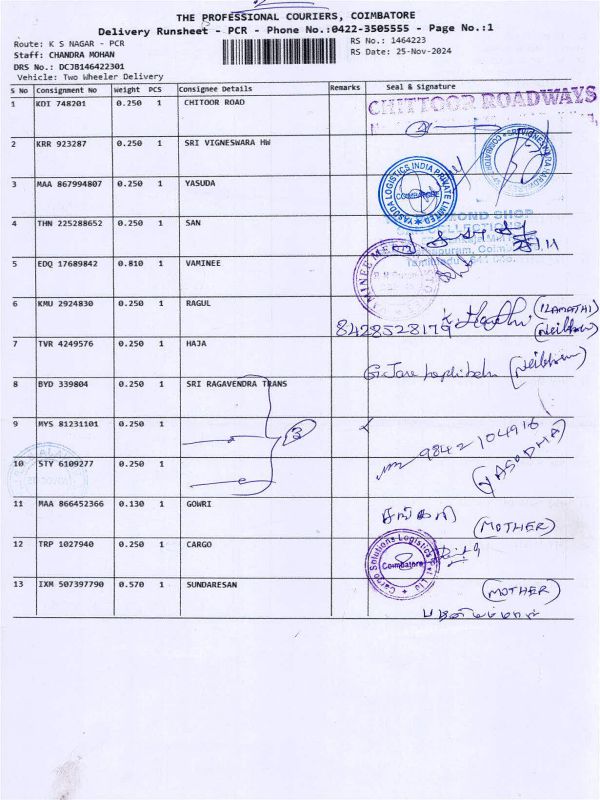 THE PROFESSIONAL COURIERS, COIMBATORE
Delivery Runsheet - PCR - Phone No.:0422-3505555 - Page No.:1
Route: K S NAGAR - PCR
RS No.: 1464223
Staff: CHANDRA MOHAN
RS Date: 25-Nov-2024
DRS No.: DCJB146422301
Vehicle: Two Wheeler Delivery
S No Consignment No Weight PCS Consignee Details Remarks Seal & Signature
1 KDI 748201 0.250 1 CHITOOR ROAD
CHITTOOR ROADWAYS
2 KRR 923287 0.250 1 SRI VIGNESWARA HW
3 MAA 867994807 0.250 1 YASUDA
YASUDA LOGISTICS INDIA PRIVATE LIMITED
COIMBATORE
4 THN 225288652 0.250 1 SAN
25/11
5 EDQ 17689842 0.810 1 VAMINEE
6 KMU 2924830 0.250 1 RAGUL
8428528179 (ILAMATHI)
7 TVR 4249576 0.250 1 HAJA
8 BYD 339804 0.250 1 SRI RAGAVENDRA TRANS
9 MYS 81231101 0.250 1
9842104916
(YASODHA)
10 STY 6109277 0.250 1
11 MAA 866452366 0.130 1 GOWRI
(MOTHER)
12 TRP 1027940 0.250 1 CARGO
Cargo Solutions Logistics Pvt Ltd
Coimbatore
13 IXM 507397790 0.570 1 SUNDARESAN
(MOTHER)